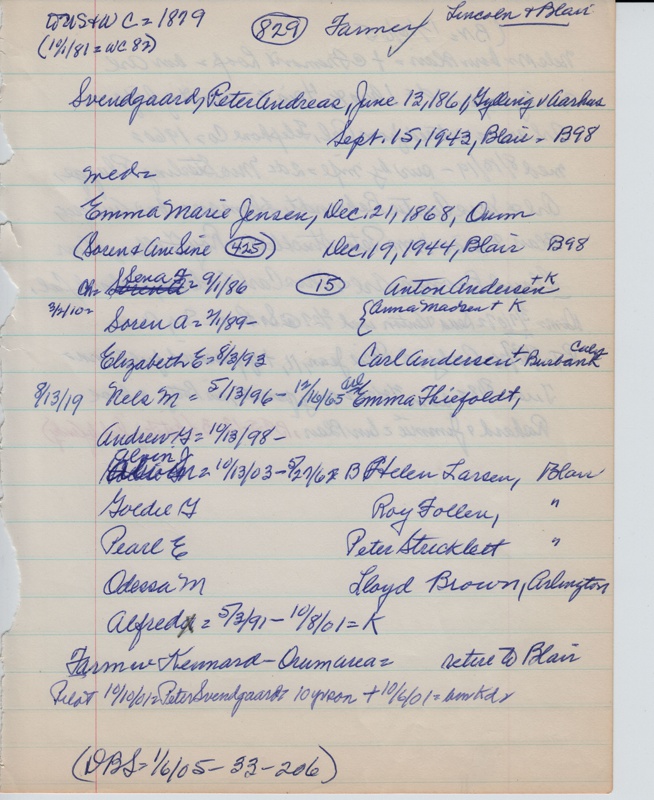 DUS&WC = 1879 (829) Farmer Lincoln & Blair
(10/1/81 = WC 82)
Svendgaard, Peter Andreas, June 13, 1861, Gylling v Aarhus
Sept. 15, 1943, Blair = B98
med =
Emma Marie Jensen, Dec. 21, 1868, Orum
(Soren & Ane Sine (425)) Dec. 19, 1944, Blair B98
Ch = Sena F = 9/1/86 (15) Anton Andersen + K
3/2/10 = { Anna Madsen + K
Soren A = 7/1/89 -
Elizabeth E = 8/3/93 Carl Andersen + Burbank Calif
8/13/19 Nels M = 5/13/96 - 12/16/65 Emma Thiefoldt,
Andrew G = 10/13/98 -
Elven J
= 10/13/03 - 5/27/67 B Helen Larsen, Blair
Goldie G Roy Follen, "
Pearl E Peter Stricklett "
Odessa M Lloyd Brown, Arlington
Alfred = 5/3/91 - 10/8/01 = K
Farmer Kennard - Orum area = retire to Blair
Pilot 10/10/01 = Peter Svendgaard = 10 yr son + 10/6/01 = bur Kdr
(DBS = 1/6/05 - 33 - 206)